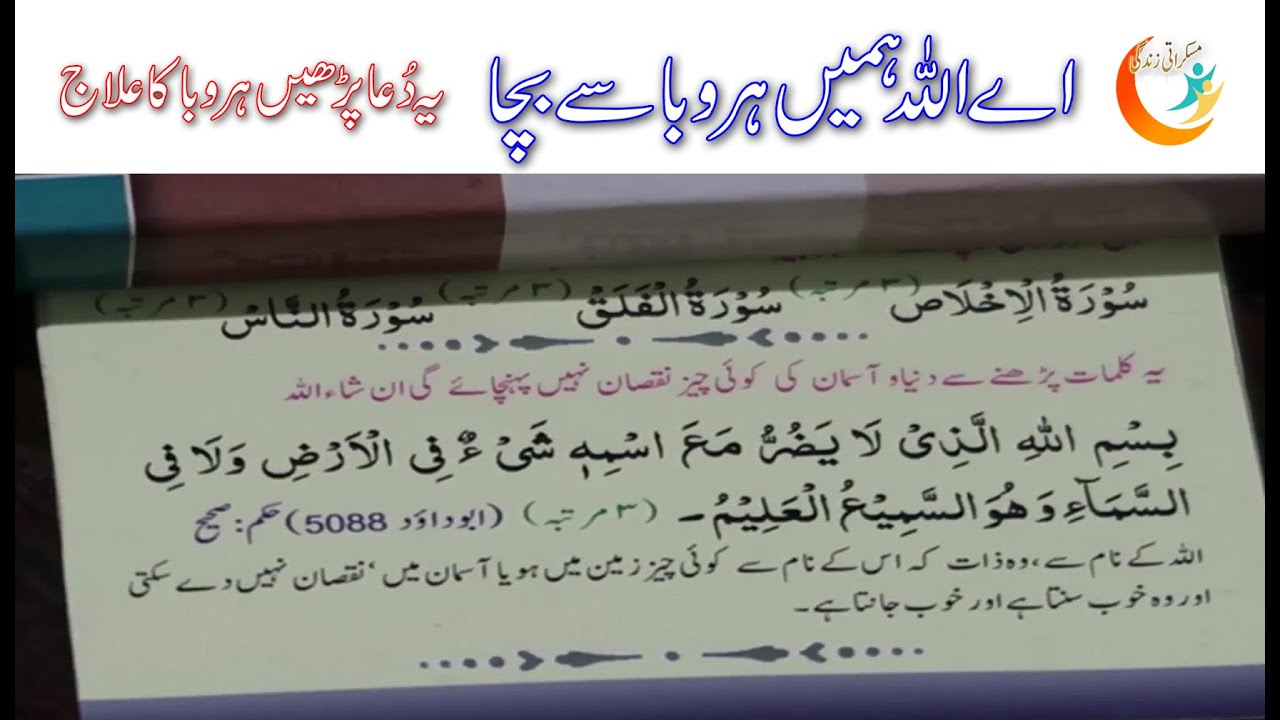 مسکراتی زندگی
اے اللہ ہمیں ہر وبا سے بچا
یہ دُعا پڑھیں ہر وبا کا علاج
سُوْرَةُ الْاِخْلَاص (۳ مرتبہ) سُوْرَةُ الْفَلَقْ (۳ مرتبہ) سُوْرَةُ النَّاسْ (۳ مرتبہ)
یہ کلمات پڑھنے سے دنیا و آسمان کی کوئی چیز نقصان نہیں پہنچائے گی ان شاء اللہ
بِسْمِ اللهِ الَّذِیْ لَا یَضُرُّ مَعَ اسْمِهٖ شَیْءٌ فِی الْاَرْضِ وَلَا فِی
السَّمَآءِ وَهُوَ السَّمِیْعُ الْعَلِیْمُ۔ (۳ مرتبہ) (ابوداؤد 5088) حکم: صحیح
اللہ کے نام سے، وہ ذات کہ اس کے نام سے کوئی چیز زمین میں ہو یا آسمان میں ‘ نقصان نہیں دے سکتی
اور وہ خوب سنتا ہے اور خوب جانتا ہے۔